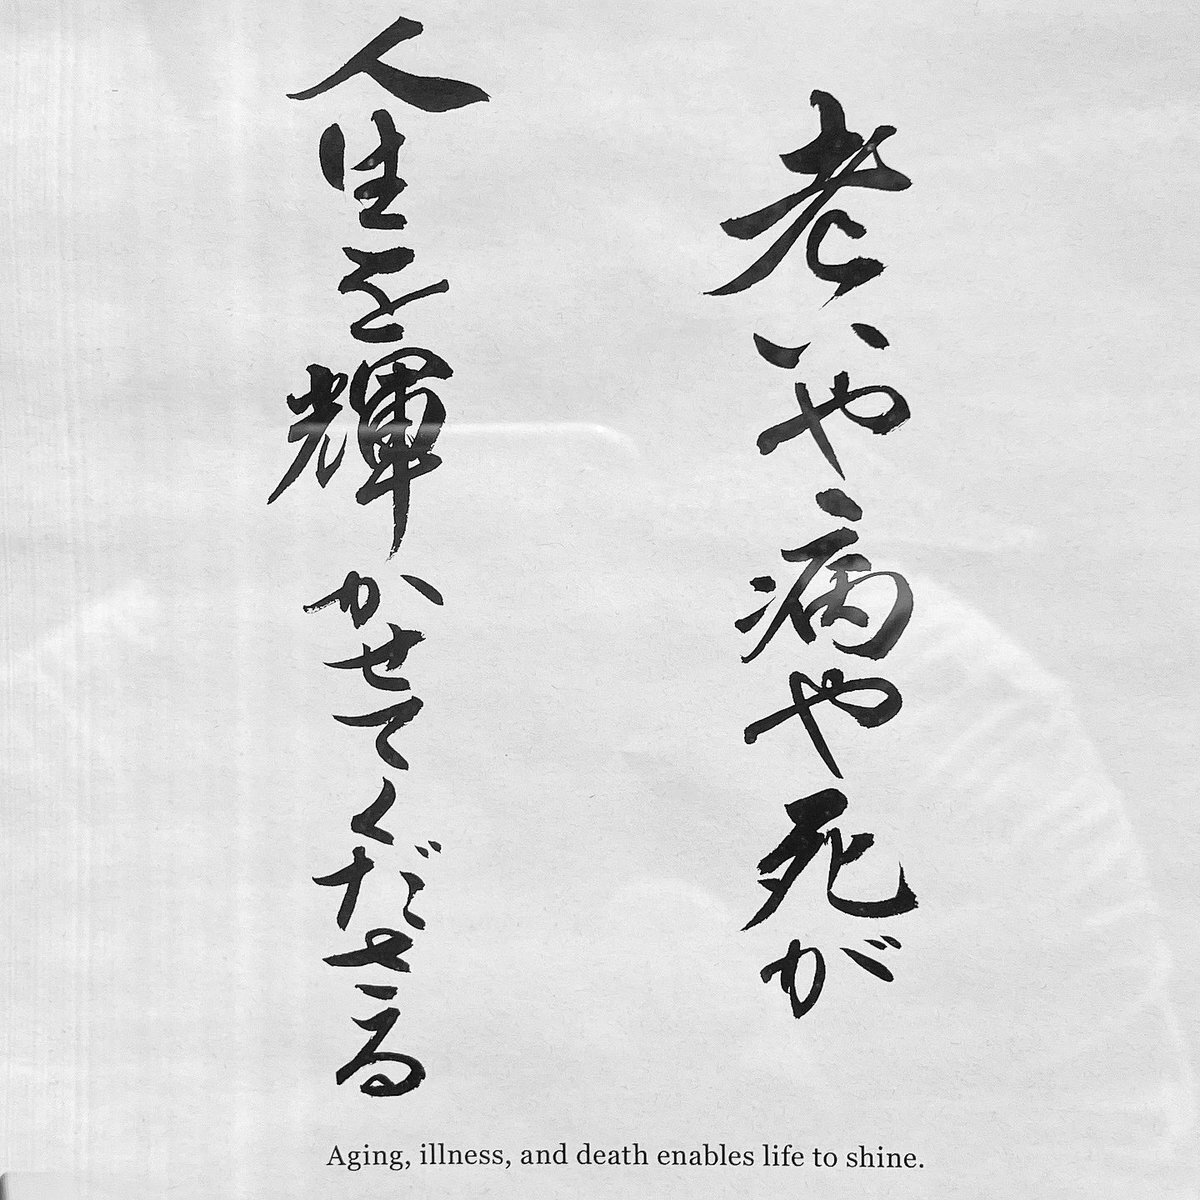 老いや病や死が
人生を輝かせてくださる
Aging, illness, and death enables life to shine.